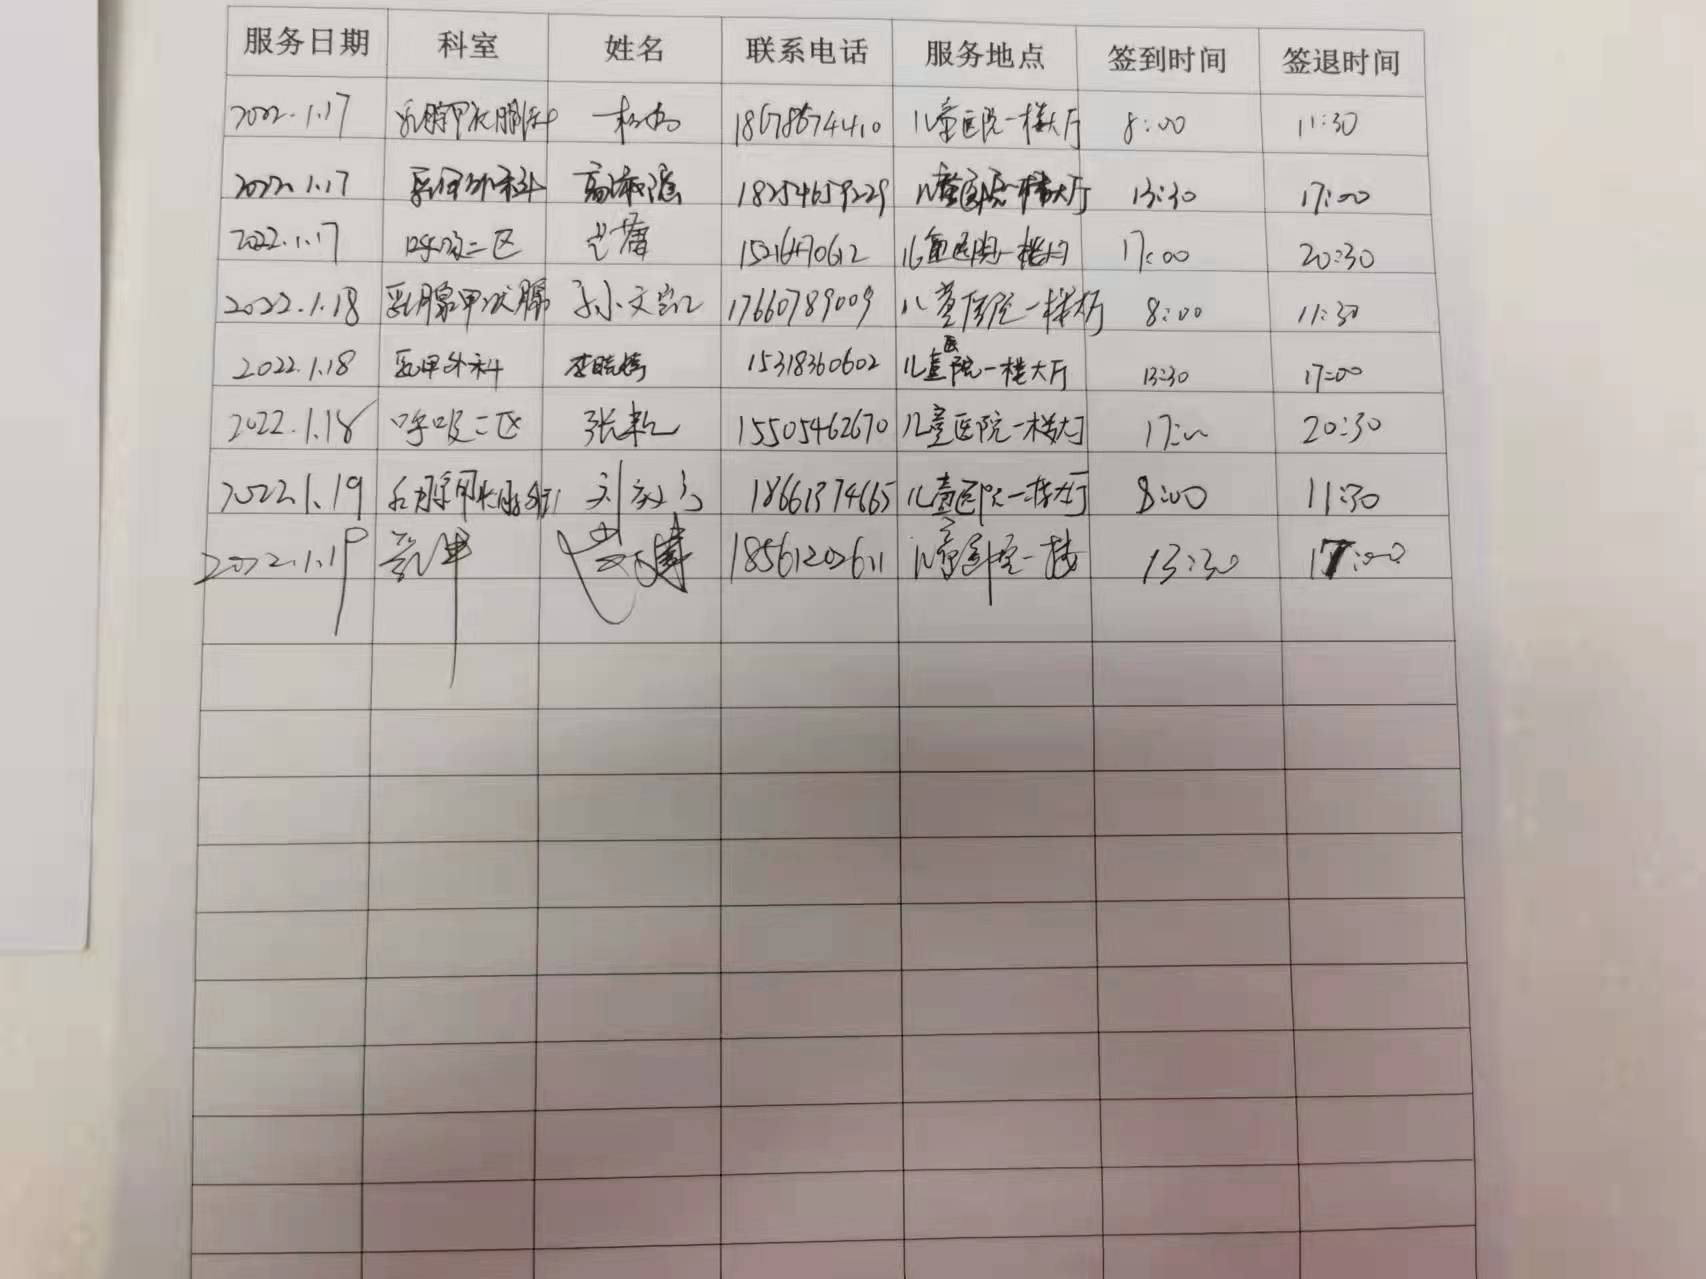 服务日期 科室 姓名 联系电话 服务地点 签到时间 签退时间
2022.1.17 乳腺甲状腺外科 18678674410 儿童医院一楼大厅 8:00 11:30
2022.1.17 乳甲外科 18254659229 儿童医院一楼大厅 13:30 17:00
2022.1.17 呼吸二区 儿童医院一楼大厅 17:00 20:30
2022.1.18 乳腺甲状腺 孙文凯 17660789009 儿童医院一楼大厅 8:00 11:30
2022.1.18 乳甲外科 李晓婷 15318360602 儿童医院一楼大厅 13:30 17:00
2022.1.18 呼吸二区 张 15505462670 儿童医院一楼大厅 17:00 20:30
2022.1.19 甲状腺 刘 18661374665 儿童医院一楼大厅 8:00 11:30
2022.1.19 乳甲 18561202611 儿童医院一楼 13:30 17:00